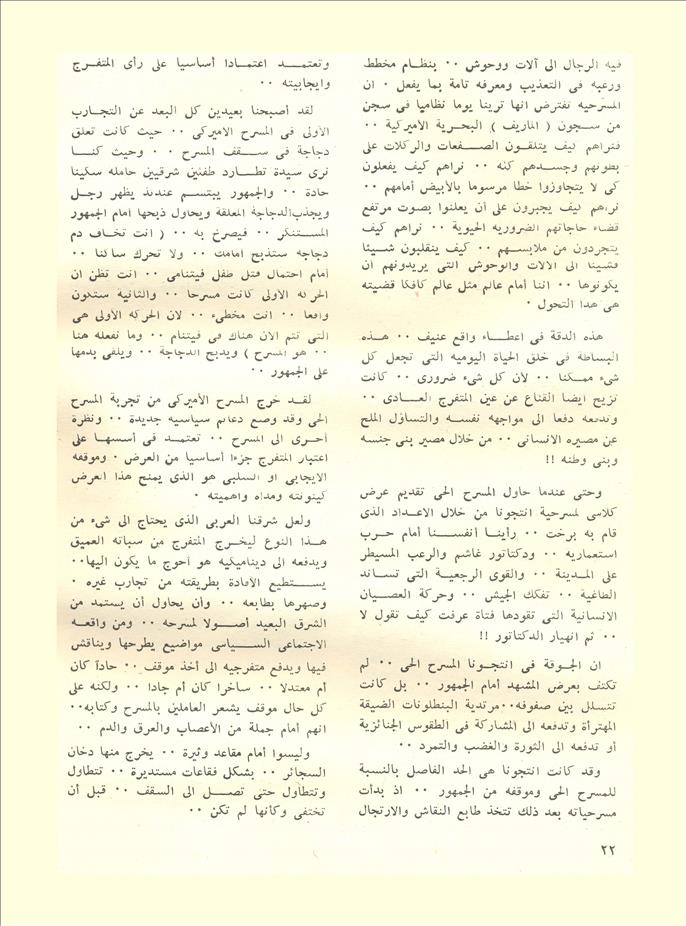 فيه الرجال الى آلات ووحوش ٠٠ بنظام مخطط
ورعبه فى التعذيب ومعرفه تامة بما يفعل ٠ ان
المسرحيه تفترض انها ترينا يوما نظاميا فى سجن
من سجون ( الماريف ) البحرية الأميركية ٠٠
فنراهم كيف يتلقون الصفعات والركلات على
بطونهم وجسدهم كله ٠٠ نراهم كيف يفعلون
كى لا يتجاوزوا خطا مرسوما بالأبيض أمامهم ٠٠
نراهم كيف يجبرون على أن يعلنوا بصوت مرتفع
قضاء حاجاتهم الضروريه الحيوية ٠٠ نراهم كيف
يتجردون من ملابسهم ٠٠ كيف ينقلبون شيئا
فشيئا الى الآلات والوحوش التى يريدونهم ان
يكونوها ٠٠ اننا أمام عالم مثل عالم كافكا قضيته
هى هذا التحول ٠
هذه الدقة فى اعطاء واقع عنيف ٠٠ هذه
البساطة فى خلق الحياة اليوميه التى تجعل كل
شىء ممكنا ٠٠ لأن كل شىء ضرورى ٠٠ كانت
تزيح ايضا القناع عن عين المتفرج العادى ٠٠
وتدفعه دفعا الى مواجهه نفسه والتساؤل الملح
عن مصيره الانسانى ٠٠ من خلال مصير بنى جنسه
وبنى وطنه !!
وحتى عندما حاول المسرح الحى تقديم عرض
كلاسى لمسرحية انتجونا من خلال الاعداد الذى
قام به برخت ٠٠ رأينا أنفسنا أمام حرب
استعماريه ٠٠ ودكتاتور غاشم والرعب المسيطر
على المدينة ٠٠ والقوى الرجعية التى تساند
الطاغية ٠٠ تفكك الجيش ٠٠ وحركة العصيان
الانسانية التى تقودها فتاة عرفت كيف تقول لا
٠٠ ثم انهيار الدكتاتور !!
ان الجوقة فى انتجونا المسرح الحى ٠٠ لم
تكتف بعرض المشهد أمام الجمهور ٠٠ بل كانت
تتسلل بين صفوفه٠٠مرتدية البنطلونات الضيقة
المهترأة وتدفعه الى المشاركة فى الطقوس الجنائزية
أو تدفعه الى الثورة والغضب والتمرد ٠٠
وقد كانت انتجونا هى الحد الفاصل بالنسبة
للمسرح الحى وموقفه من الجمهور ٠٠ اذ بدأت
مسرحياته بعد ذلك تتخذ طابع النقاش والارتجال
وتعتمد اعتمادا أساسيا على رأى المتفرج
وايجابيته ٠٠
لقد أصبحنا بعيدين كل البعد عن التجارب
الأولى فى المسرح الاميركى ٠٠ حيث كانت تعلق
دجاجة فى سقف المسرح ٠٠ وحيث كنا
نرى سيدة تطارد طفلين شرقيين حامله سكينا
حادة ٠٠ والجمهور يبتسم عندئذ يظهر رجل
ويجذب الدجاجة المعلقة ويحاول ذبحها أمام الجمهور
المستنكر ٠٠ فيصرخ به ٠٠ ( انت تخاف دم
دجاجه ستذبح أمامك ٠٠ ولا تحرك ساكنا ٠٠
أمام احتمال قتل طفل فيتنامى ٠٠ انت تظن ان
الحركه الأولى كانت مسرحا ٠٠ والثانية ستكون
واقعا ٠٠ انت مخطىء ٠٠ لان الحركه الأولى هى
التى تتم الآن هناك فى فيتنام ٠٠ وما نفعله هنا
٠٠ هو المسرح ) ويذبح الدجاجة ٠٠ ويلقى بدمها
على الجمهور ٠٠
لقد خرج المسرح الأميركى من تجربة المسرح
الحى وقد وضع دعائم سياسيه جديدة ٠٠ ونظرة
أخرى الى المسرح ٠٠ تعتمد فى أسسها على
اعتبار المتفرج جزءا أساسيا من العرض ٠ وموقفه
الايجابى او السلبى هو الذى يمنح هذا العرض
كينونته ومداه واهميته ٠
ولعل شرقنا العربى الذى يحتاج الى شىء من
هذا النوع ليخرج المتفرج من سباته العميق
ويدفعه الى ديناميكيه هو أحوج ما يكون اليها٠٠
يستطيع الافادة بطريقته من تجارب غيره ٠
وصهرها بطابعه ٠٠ وأن يحاول أن يستمد من
الشرق البعيد أصولا لمسرحه ٠٠ ومن واقعه
الاجتماعى السياسى مواضيع يطرحها ويناقش
فيها ويدفع متفرجيه الى أخذ موقف ٠٠ حاداً كان
أم معتدلا ٠٠ ساخرا كان أم جادا ٠٠ ولكنه على
كل حال موقف يشعر العاملين بالمسرح وكتابه٠٠
انهم أمام جملة من الأعصاب والعرق والدم ٠٠
وليسوا أمام مقاعد وثيرة ٠٠ يخرج منها دخان
السجائر ٠٠ بشكل فقاعات مستديرة ٠٠ تتطاول
وتتطاول حتى تصل الى السقف ٠٠ قبل أن
تختفى وكأنها لم تكن ٠٠
٢٢